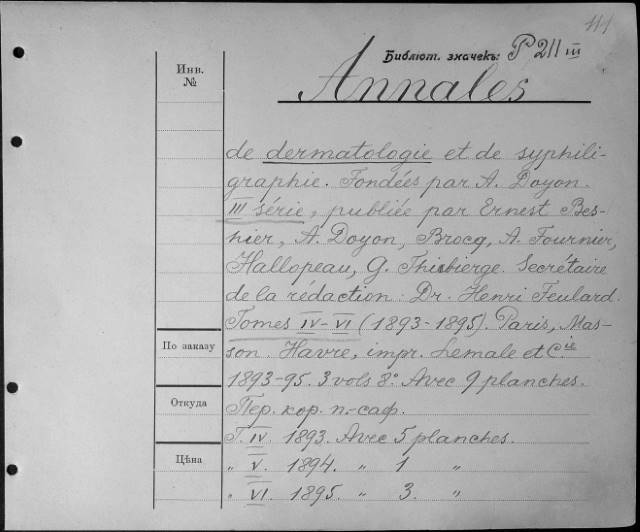 111
Библіот. значекъ: P 211 III
Annales
Инв.
№
de dermatologie et de syphili-
graphie. Fondées par A. Doyon.
III série, publiée par Ernest Bes-
nier, A. Doyon, Brocq, A. Fournier,
Hallopeau, G. Thibierge. Secrétaire
de la rédaction: Dr. Henri Feulard.
Tomes IV-VI (1893-1895). Paris, Mas-
По заказу
son. Havre, impr. Lemale et Cie
1893-95. 3 vols 8º. Avec 9 planches.
Откуда
Пер. кор. п.-саф.
T. IV. 1893. Avec 5 planches.
Цѣна
„ V. 1894. „ 1 „
„ VI. 1895. „ 3. „